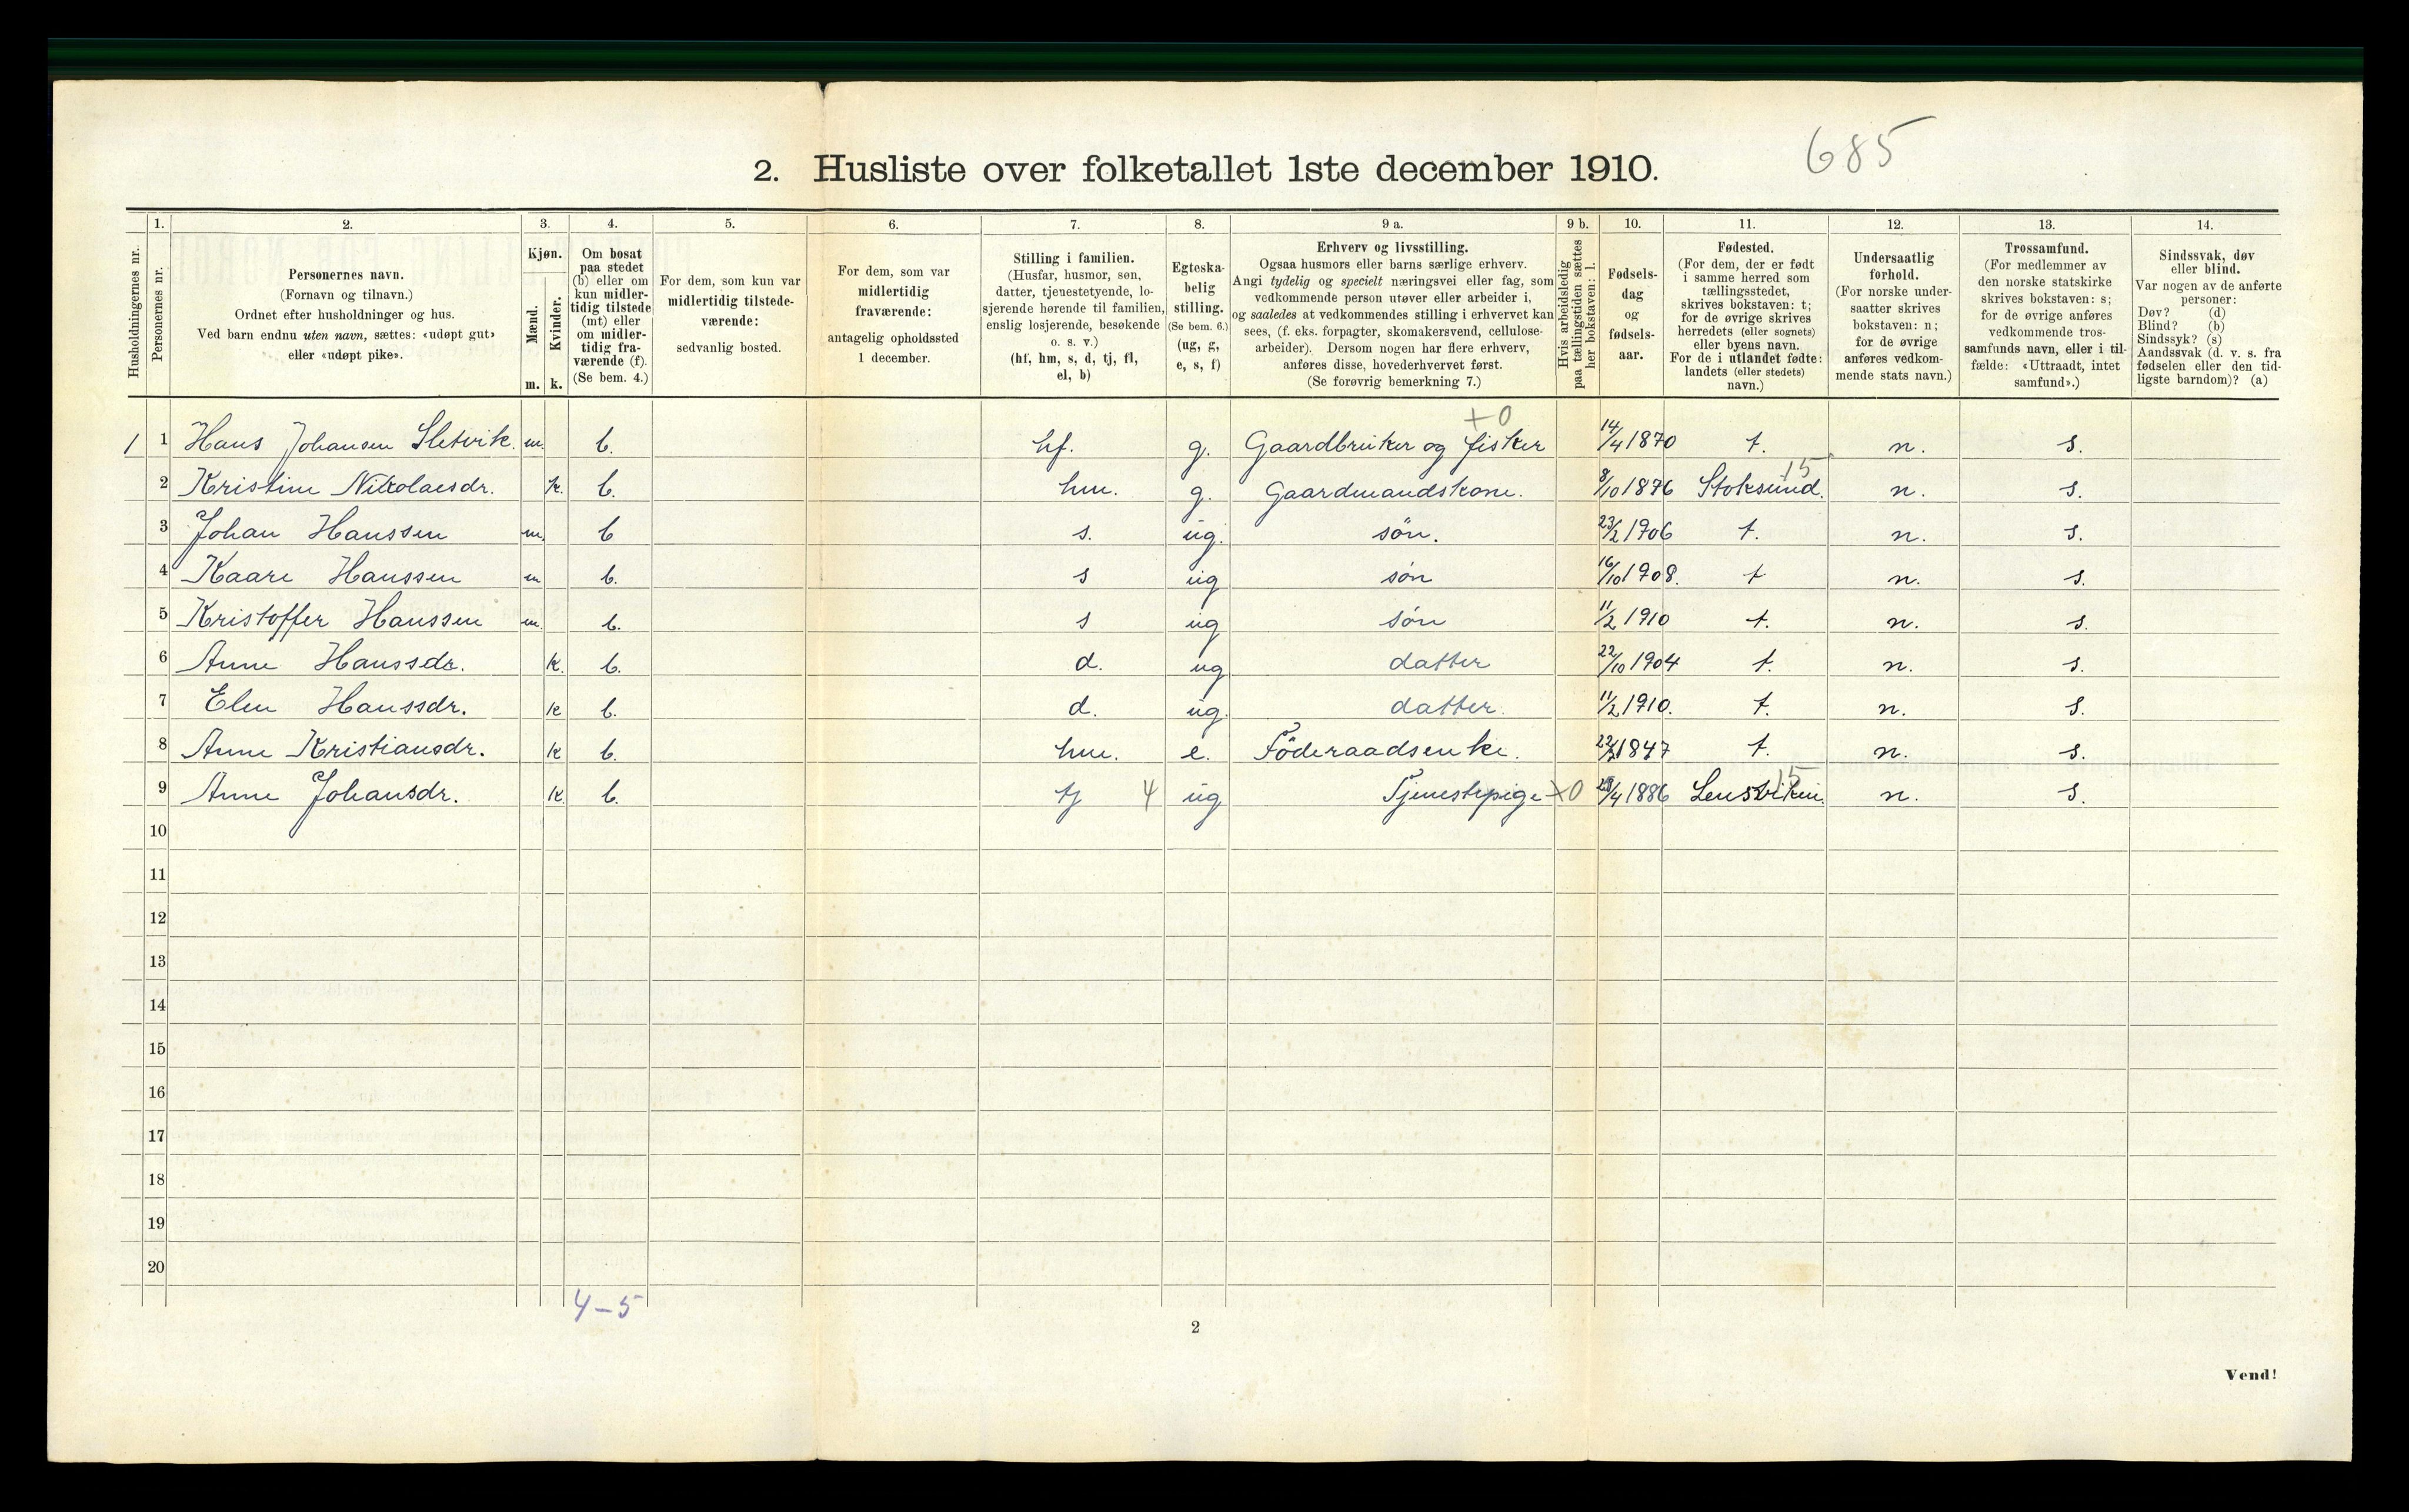 685
2. Husliste over folketallet 1ste december 1910.
Husholdningernes nr.
1.
Personernes nr.
2.
Personernes navn.
(Fornavn og tilnavn.)
Ordnet efter husholdninger og hus.
Ved barn endnu uten navn, sættes: «udøpt gut»
eller «udøpt pike».
3.
Kjøn.
Mænd.
Kvinder.
m. k.
4.
Om bosat
paa stedet
(b) eller om
kun midler-
tidig tilstede
(mt) eller
om midler-
tidig fra-
værende (f).
(Se bem. 4.)
5.
For dem, som kun var
midlertidig tilstede-
værende:
sedvanlig bosted.
6.
For dem, som var
midlertidig
fraværende:
antagelig opholdssted
1 december.
7.
Stilling i familien.
(Husfar, husmor, søn,
datter, tjenestetyende, lo-
sjerende hørende til familien,
enslig losjerende, besøkende
o. s. v.)
(hf, hm, s, d, tj, fl,
el, b)
8.
Egteska-
belig
stilling.
(Se bem. 6.)
(ug, g,
e, s, f)
9 a.
Erhverv og livsstilling.
Ogsaa husmors eller barns særlige erhverv.
Angi tydelig og specielt næringsvei eller fag, som
vedkommende person utøver eller arbeider i,
og saaledes at vedkommendes stilling i erhvervet kan
sees, (f. eks. forpagter, skomakersvend, cellulose-
arbeider). Dersom nogen har flere erhverv,
anføres disse, hovederhvervet først.
(Se forøvrig bemerkning 7.)
9 b.
Hvis arbeidsledig
paa tællingstiden sættes
her bokstaven: l.
10.
Fødsels-
dag
og
fødsels-
aar.
11.
Fødested.
(For dem, der er født
i samme herred som
tællingsstedet,
skrives bokstaven: t;
for de øvrige skrives
herredets (eller sognets)
eller byens navn.
For de i utlandet fødte:
landets (eller stedets)
navn.)
12.
Undersaatlig
forhold.
(For norske under-
saatter skrives
bokstaven: n;
for de øvrige
anføres vedkom-
mende stats navn.)
13.
Trossamfund.
(For medlemmer av
den norske statskirke
skrives bokstaven: s;
for de øvrige anføres
vedkommende tros-
samfunds navn, eller i til-
fælde: «Uttraadt, intet
samfund».)
14.
Sindssvak, døv
eller blind.
Var nogen av de anførte
personer:
Døv? (d)
Blind? (b)
Sindssyk? (s)
Aandssvak (d. v. s. fra
fødselen eller den tid-
ligste barndom)? (a)
+0
1 1 Hans Johansen Sletvik. m. b. hf. g. Gaardbruker og fisker 14/4 1870 t. n. s.
15
2 Kristine Nikolaisdr. k. b. hm. g. Gaardmandskone. 8/10 1876 Stoksund. n. s.
3 Johan Hanssen m. b s. ug. søn. 23/2 1906 t. n. s.
4 Kaare Hanssen m b. s ug søn 16/10 1908. t n. s.
5 Kristoffer Hanssen m. b. s ug søn 11/2 1910 t. n. s.
6 Anne Hanssdr. k. b. d. ug datter 22/10 1904 t. n. s.
7 Elen Hanssdr. k b. d. ug. datter. 11/2 1910. t. n. s.
8 Anne Kristiansdr. k b. hm. e. Föderaadsenke. 1847 t. n. s.
15
9 Anne Johansdr. k b. tj 4 ug Tjenestepige +0 /4 1886 Lensviken. n. s.
10
11
12
13
14
15
16
17
18
19
20
4-5
2
Vend!